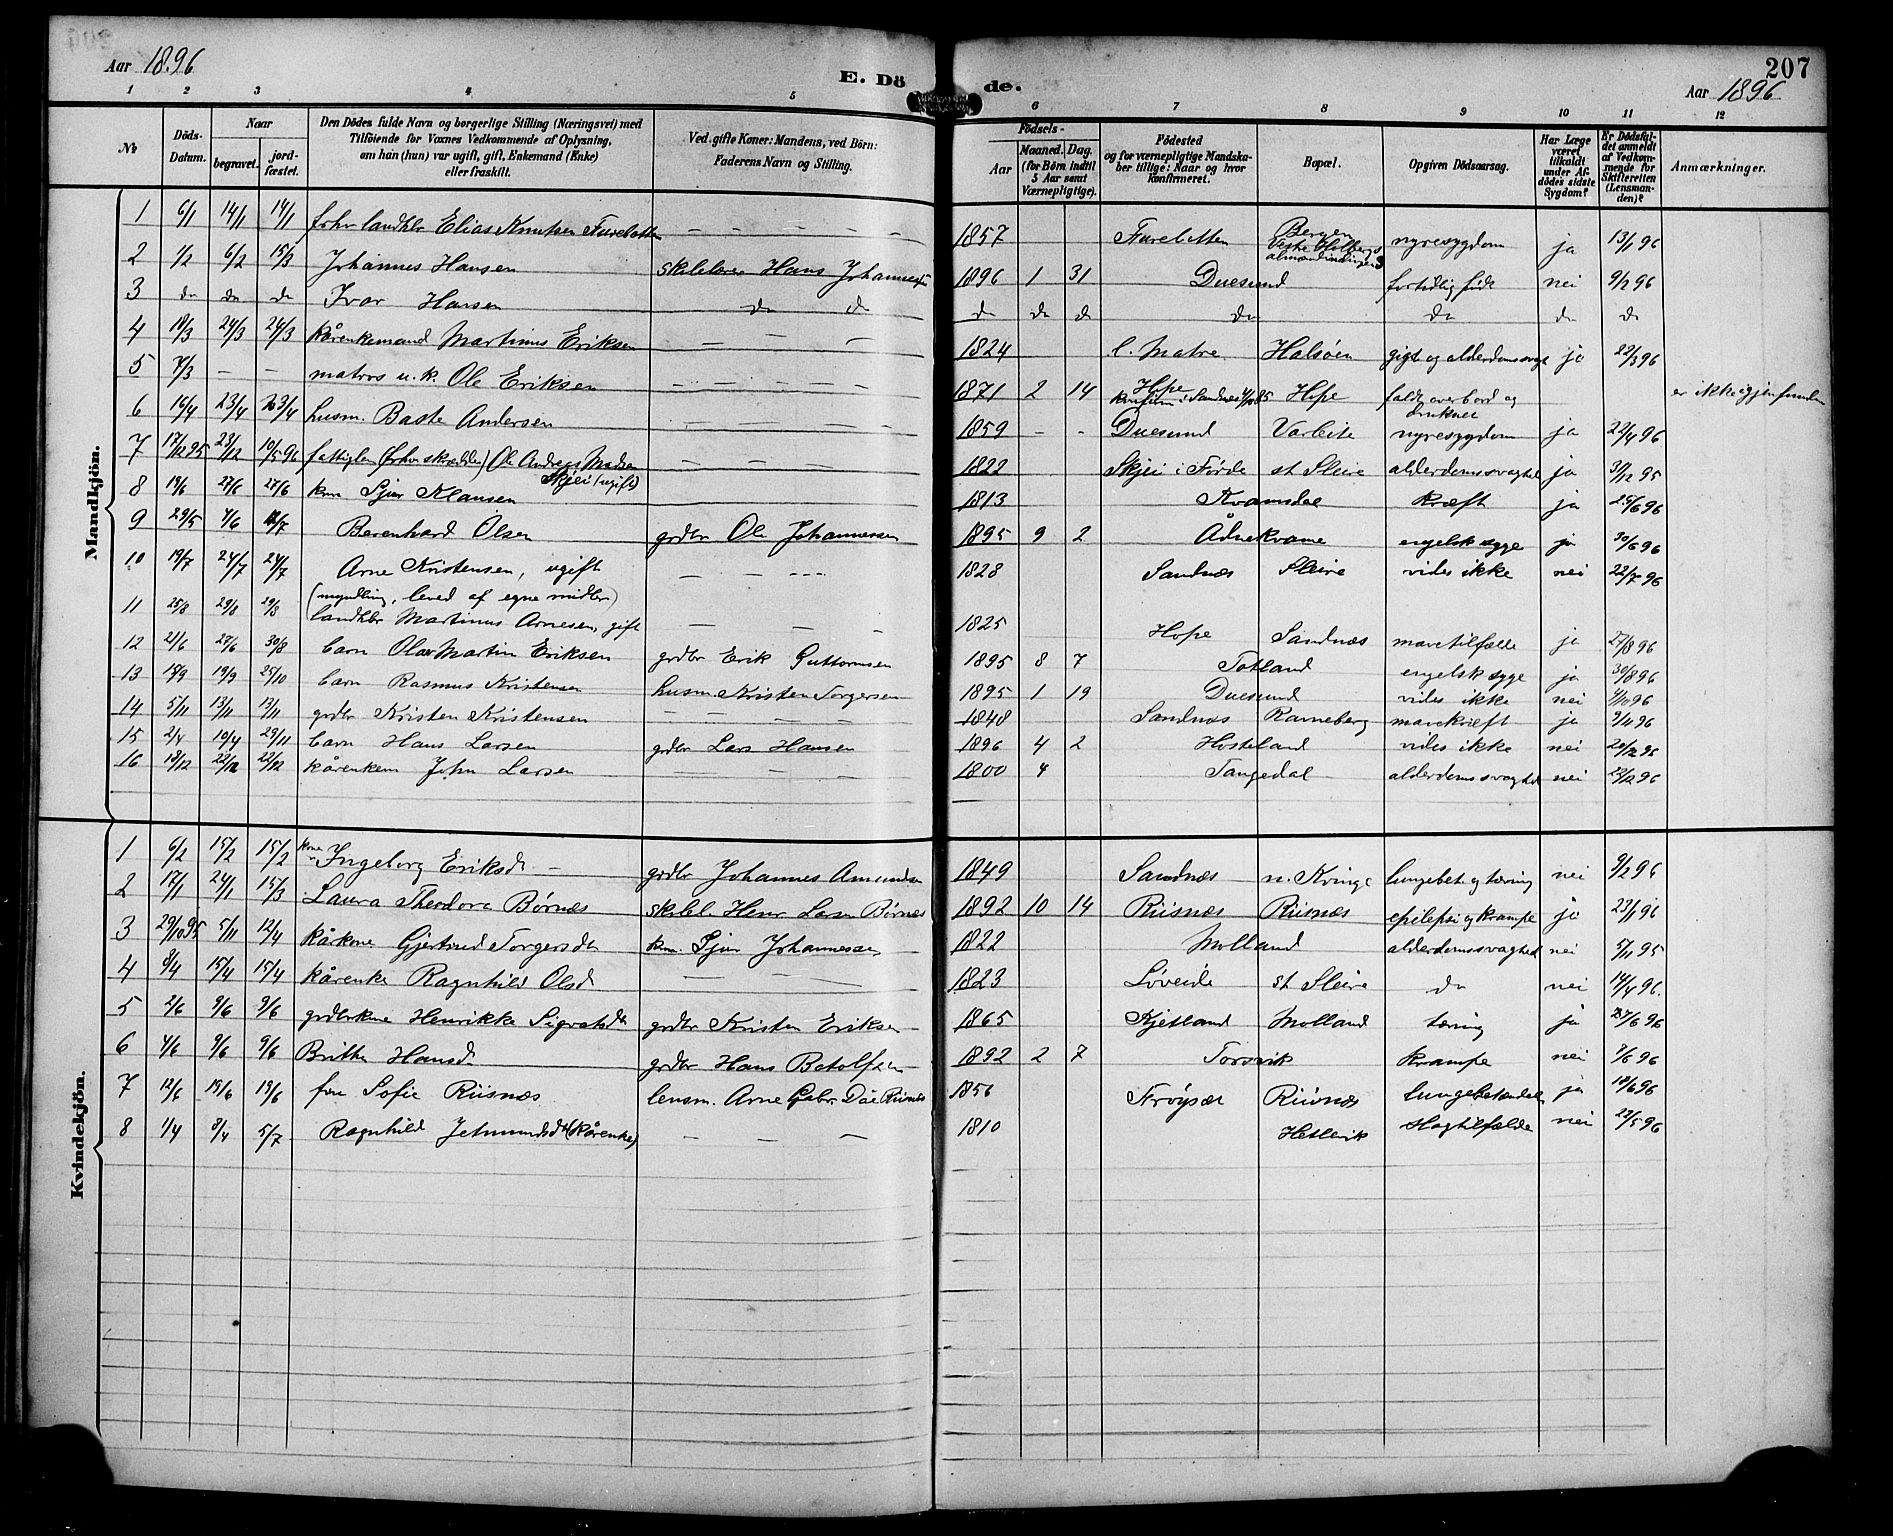 Aar 1896
E. Dö
de.
207
Aar 1896
1 2 3 4 5 6 7 8 9 10 11 12
№ Döds-Datum. Naar begravet. jord-fæstet. Den Dödes fulde Navn og borgerlige Stilling (Næringsvei) med Tilföiende for Voxnes Vedkommende af Oplysning, om han (hun) var ugift, gift, Enkemand (Enke) eller fraskilt. Ved gifte Koner: Mandens, ved Börn: Faderens Navn og Stilling. Födsels- Aar Maaned. Dag. (for Börn indtil 5 Aar samt Værnepligtige). Födested og for værnepligtige Mandskaber tillige: Naar og hvor konfirmeret. Bopæl. Opgiven Dödsaarsag. Har Læge været tilkaldt under Afdödes sidste Sygdom? Er Dödsfaldet anmeldt af Vedkommende for Skifteretten (Lensmanden)? Anmærkninger.
Mandkjön.
1 6/1 14/1 14/1 forhv landhbr Elias Knutsen Furebotten — — — 1857 Furebotten Bergen nyresygdom ja 13/1 96
2 1/2 6/2 15/3 Johannes Hansen skolelærer Hans Johannessen 1896 1 31 Duesund fortidlig født nei 9/2 96
3 do do do Ivar Hansen do do do do do do do do do
4 18/3 24/3 24/3 kårenkemand Martinus Eriksen — — — 1824 l. Matre Halsøen gigt og alderdomssvagh ja 22/3 96
5 7/3 — — matros u.k. Ole Eriksen — — — 1871 2 14 Hope Hope faldt overbord og druknet er ikke igjenfunden
6 16/4 23/4 23/4 husm. Baste Andersen 1859 - - Duesund Varleite nyresygdom ja 22/4 96
7 17/12 95 23/12 10/5 96 fattiglem (forhv skrædder) Ole Andreas Madsen Skjei (ugift) 1822 Skjei i Førde st Sleire alderdomssvaghed ja 31/12 95
8 19/6 27/6 27/6 km Sjur Klausen 1813 Kvamsdal kræft ja 25/6 96
9 29/5 7/6 Berenhard Olsen grdbr Ole Johannessen 1895 9 2 Ådnekvame engelsk syge ja 30/6 96
10 19/7 24/7 24/7 Arne Kristensen, ugift — — — 1828 Sandnæs Sleire vides ikke nei 22/7 96
(myndling, leved af egne midler)
11 25/8 29/8 29/8 landhbr Martinus Arnesen, gift — — — 1825 Hope Sandnæs mavetilfælde ja 27/8 96
12 21/6 27/6 30/8 barn Olav Martin Eriksen grdbr Erik Guttormsen 1895 8 7 Totland engelsk syge ja 30/8 96
13 15/9 19/9 25/10 barn Rasmus Kristensen husm. Kristen Torgersen 1895 1 19 Duesund vides ikke nei
14 5/11 13/11 13/11 grdbr Kristen Kristensen — — — 1848 Sandnæs Ramneberg mavekræft ja 9/11 96
15 2/4 10/4 29/11 barn Hans Larsen grdbr Lars Hansen 1896 4 2 Hosteland vides ikke nei
16 18/12 22/12 22/12 kårenkem John Larsen — — — 1800 4 Tangedal alderdomssvaghed nei 22/12 96
Kvindekjön.
1 6/2 15/2 15/2 kone Ingeborg Eriksd — grdbr Johannes Amundsen 1849 Sandnæs n. Kvinge lungebet. og tæring nei 9/2 96
2 17/1 24/1 15/3 Laura Theodora Børnæs skolel. Henr Larsen Børnæs 1892 10 14 Riisnæs Riisnæs epilepsi og krampe ja 23/1 96
3 29/10 95 5/11 12/4 kårkone Gjertrud Torgersdtr km. Sjur Johannessen 1822 Molland alderdomssvaghed nei 5/11 95
4 8/4 15/4 15/4 kårenke Ragnhild Olsd — — 1823 Løveide st Sleire do nei 14/4 96.
5 2/6 9/6 9/6 grdbrkone Henrikke Sigvatsdtr grdbr Kristen Eriksen 1865 Kjetland Molland tæring ja 27/6 96
6 4/6 9/6 9/6 Britha Hansd grdbr Hans Botolfsen 1892 2 7 Torsvik krampe nei 9/6 96
7 12/6 19/6 19/6 fru Sofie Riisnæs lensm. Arne Gabr. Dåe Riisnæs 1856 Frøyset Riisnæs lungebetændelse ja 18/6 96
8 1/4 8/4 5/7 Ragnhild Jetmundsdt (kårenke) — — — 1810 Hetlevik slagtilfælde nei 22/5 96